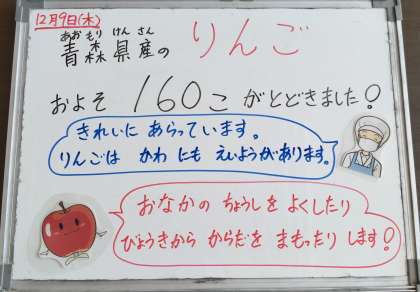 12月9日(木)
あおもり けん さん
青森県産の りんご
およそ 160こ がとどきました!
きれいに あらっています。
りんごは かわ にも えいようがあります。
おなかの ちょうしを よくしたり
びょうきから からだを まもったり します!